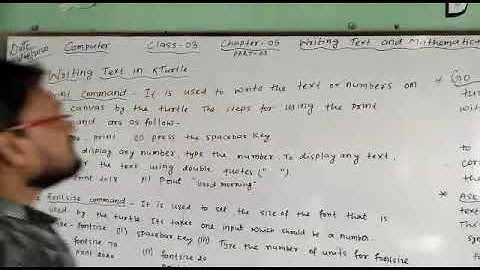 Date Computer Class-03 Chapter-05 Writing Text and Mathematica
PART-03
Writing Text in KTurtle
int command - It is used to write the text or numbers on
canvas by the turtle The steps for using the print
mand are as follow-
print 20 press the spacebar key
display any number, type the number. To display any text,
the text using double quotes (" ").
print 2018 (ii) Print "Good morning"
fontsize command - It is used to set the size of the font that is
used by the turtle Its takes one input which should be a number.
fontsize (ii) spacebar key (iii) Type the number of units for fontsize
fontsize 70 (ii) fontsize 20
print 2020
* Go
tur
wit
to
cor
the
* Ask
text
The